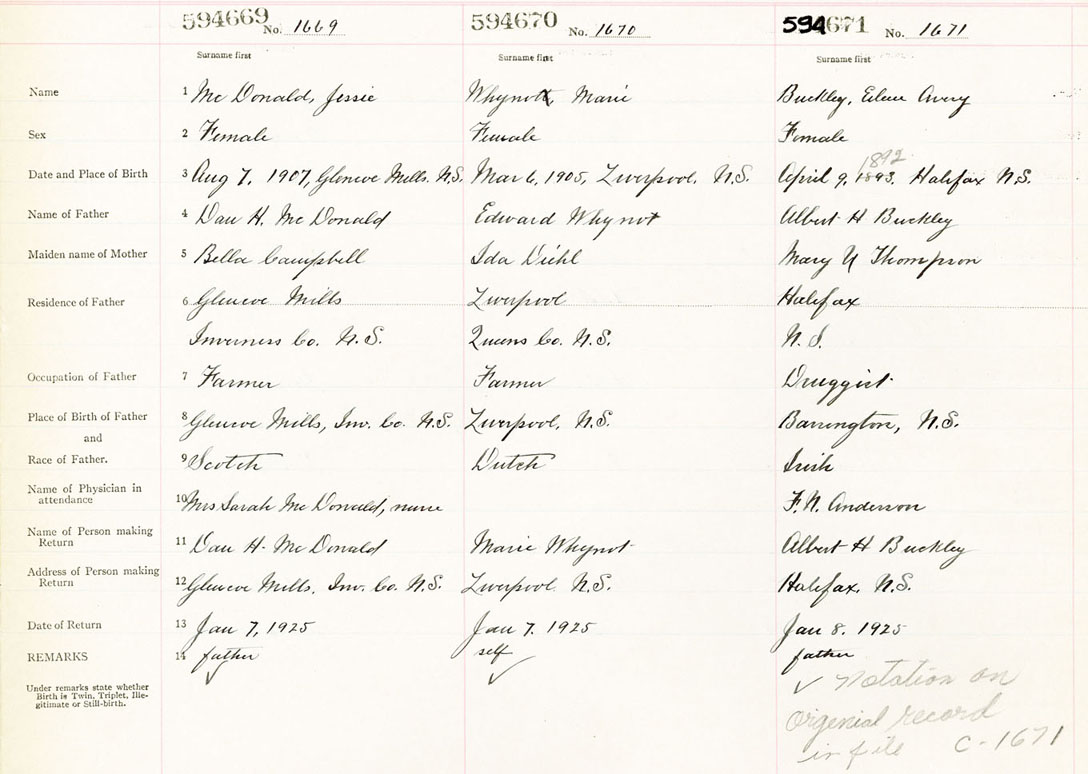 594669 No. 1669 594670 No. 1670 594671 No. 1671
Surname first Surname first Surname first
Name 1 Mc Donald, Jessie Whynot, Marie Buckley, Eileen Avery
Sex 2 Female Female Female
1892
Date and Place of Birth 3 Aug 7, 1907, Glencoe Mills. N.S. Mar 6, 1905, Liverpool, N.S. April 9, 1893, Halifax N.S.
Name of Father 4 Dan H. Mc Donald Edward Whynot Albert H Buckley
Maiden name of Mother 5 Bella Campbell Ida Diehl Mary U Thompson
Residence of Father 6 Glencoe Mills Liverpool Halifax
Inverness Co. N.S. Queens Co. N.S. N.S.
Occupation of Father 7 Farmer Farmer Druggist
Place of Birth of Father 8 Glencoe Mills, Inv. Co. N.S. Liverpool, N.S. Barrington, N.S.
and
Race of Father. 9 Scotch Dutch Irish
Name of Physician in
attendance 10 Mrs Sarah Mc Donald, nurse F. N. Anderson
Name of Person making
Return 11 Dan H. Mc Donald Marie Whynot Albert H Buckley
Address of Person making
Return 12 Glencoe Mills, Inv. Co. N.S. Liverpool N.S. Halifax, N.S.
Date of Return 13 Jan 7, 1925 Jan 7. 1925 Jan 8. 1925
REMARKS 14 father self father
Under remarks state whether
Birth is Twin, Triplet, Ille-
gitimate or Still-birth.
✓ Notation on
Orgenial record
in file C-1671